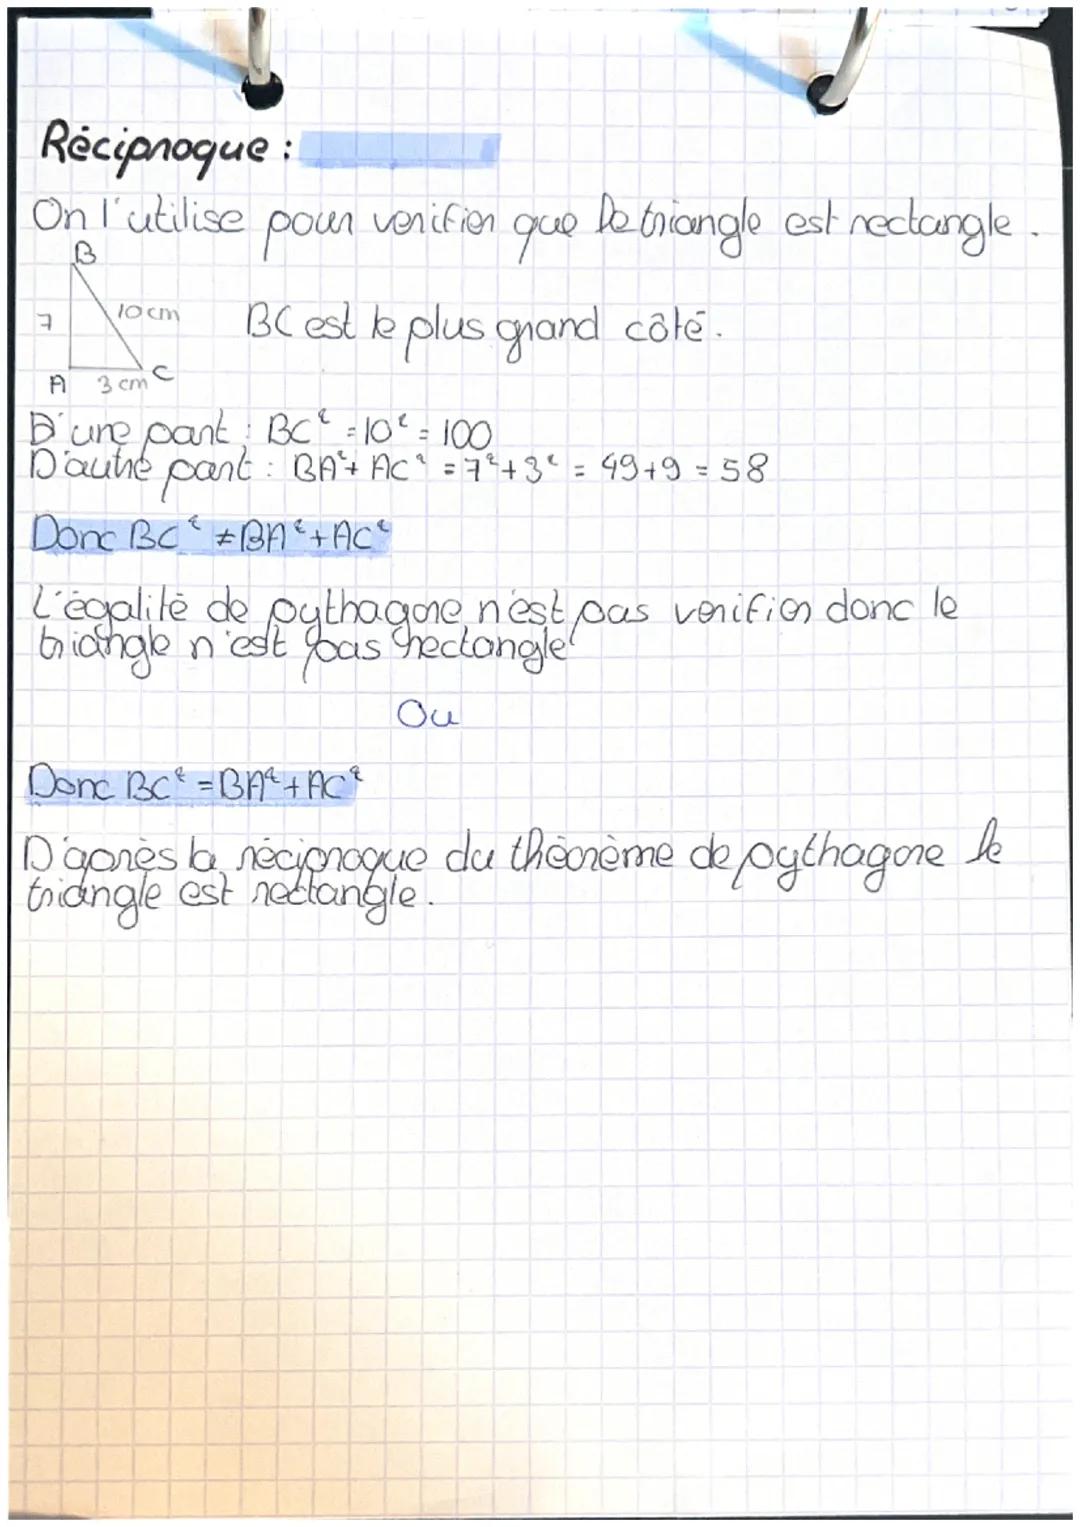 Réciproque :
On l'utilise pour verifier que le triangle est rectangle.
B
7
10 cm
BC est le plus grand côté.
A
3 cm
C
D'une part : BC² = 10² = 100
D'autre part : BA² + AC² = 7² + 3² = 49 + 9 = 58
Donc BC² ≠ BA² + AC²
L'égalité de pythagore n'est pas verifier donc le
triangle n'est pas rectangle
Ou
Donc BC² = BA² + AC²
D'après la réciproque du théorème de pythagore le
triangle est rectangle.